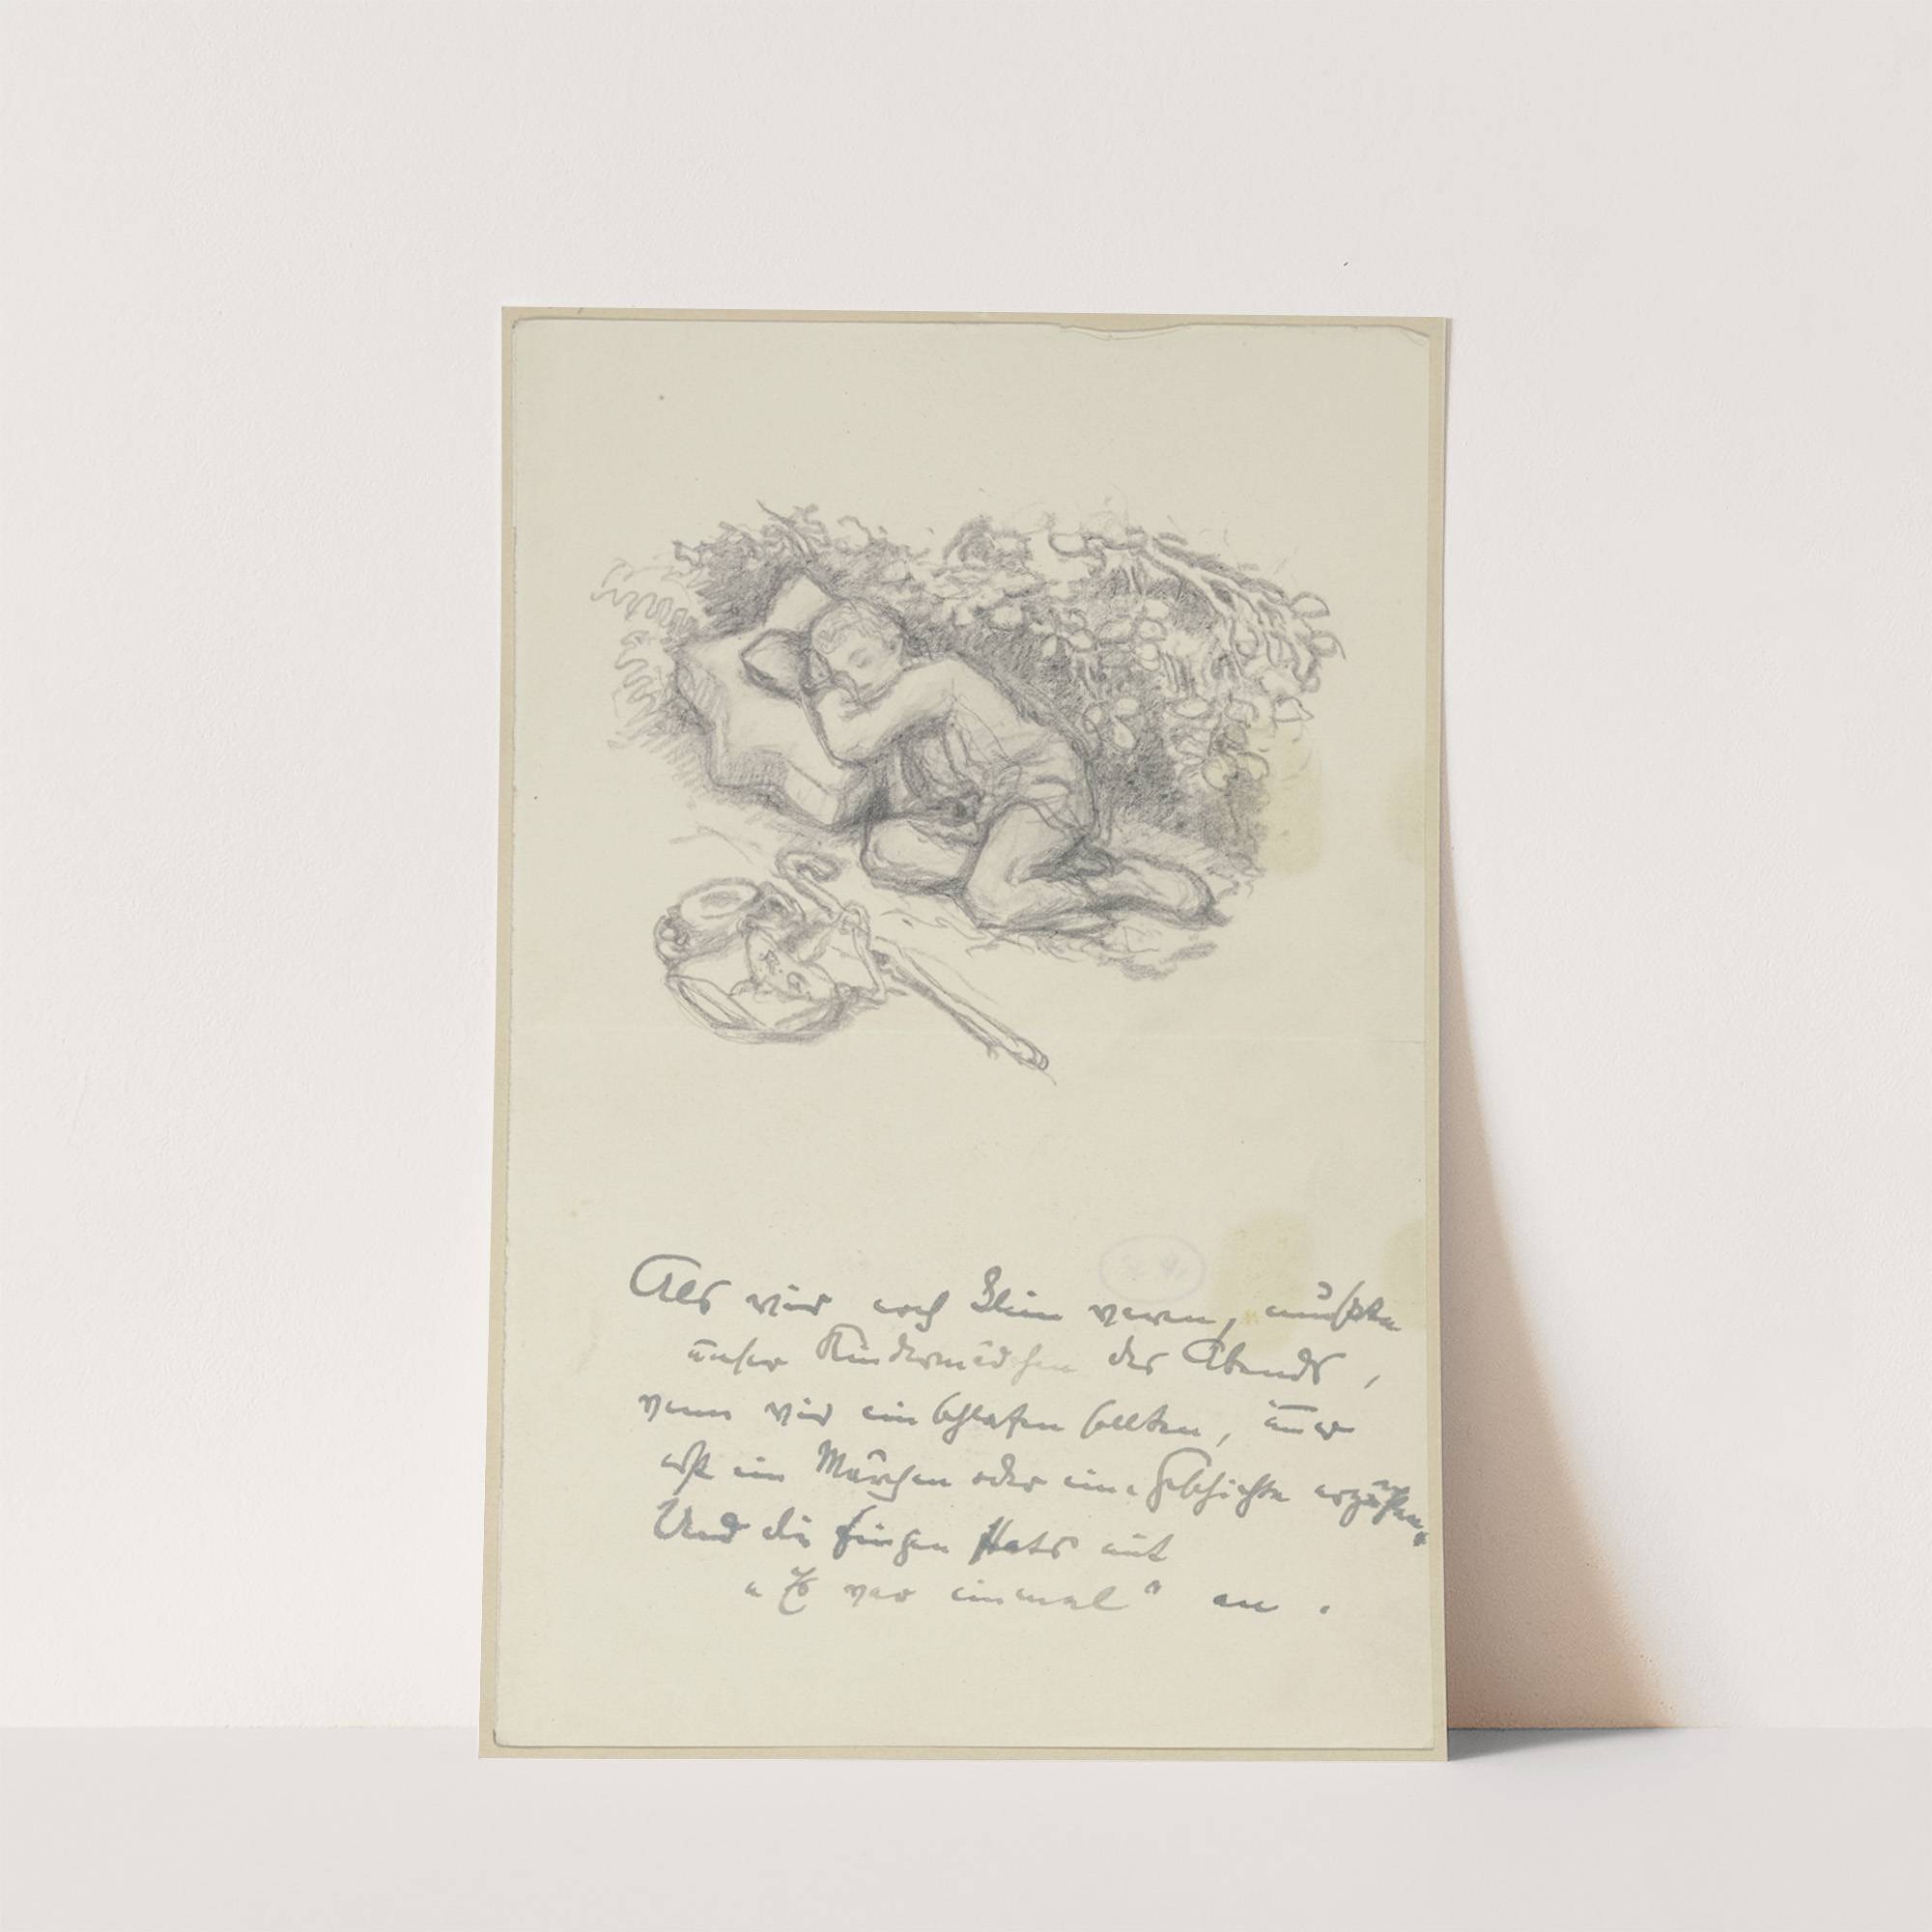 Als wir noch klein waren, mußte
unser Kindermädchen des Abends,
wenn wir einschlafen sollten, uns
erst ein Märchen oder eine Geschichte erzählen.
Und die fingen stets mit
„Es war einmal“ an.